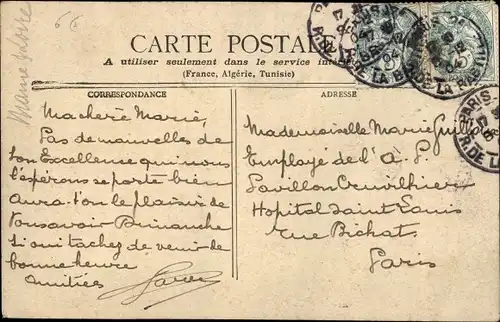 CARTE POSTALE
A utiliser seulement dans le service
(France, Algérie, Tunisie)
CORRESPONDANCE
ADRESSE
Ma chere Marie,
Pas de nauvelles de
son Excellence qui nous
l'espérons se porte bien
Aura-t'on le plaisir de
vous avoir Dimanche
Si oui tachez de venir de
bonne heure
Amitiés
Mademoiselle Marie
Employé de l'A. P.
Pavillon Cruvilhier
Hopital Saint Louis
rue Bichat
Paris